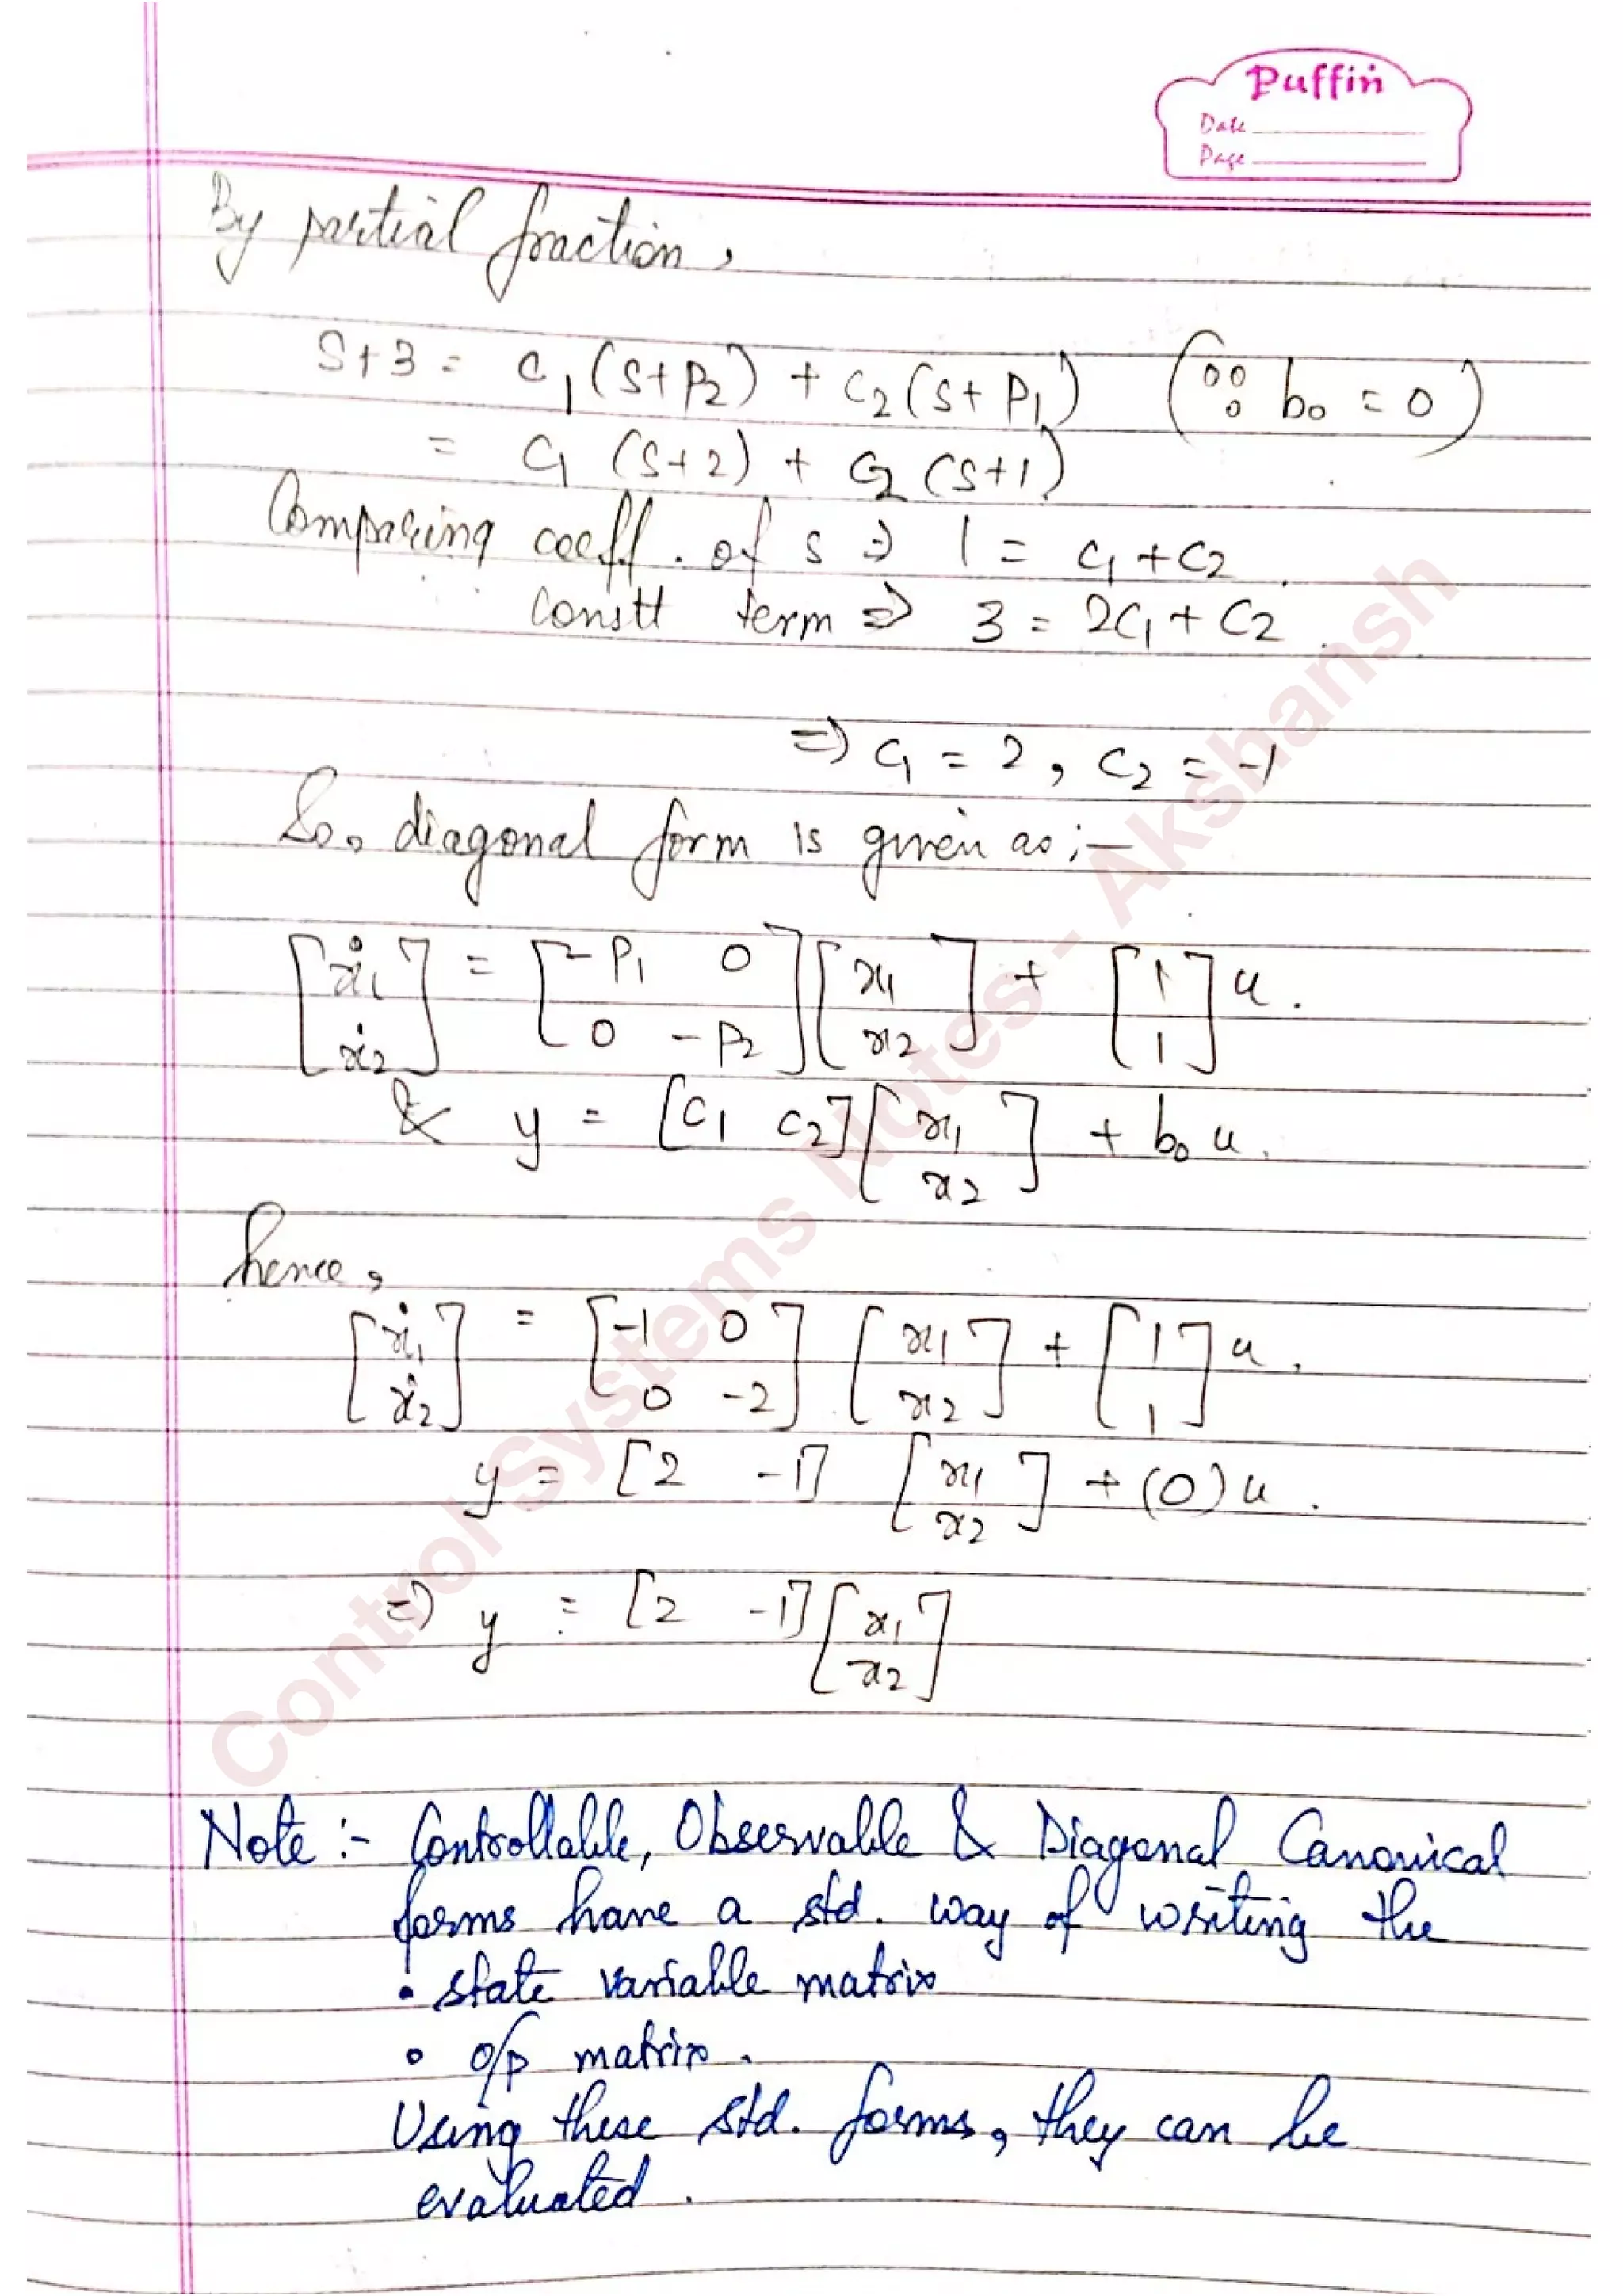 Puffin
Date
Page
By partial fraction,
S+3 = c₁(s+p₂) + c₂(s+p₁) (∵ b₀ = 0)
= c₁ (s+2) + c₂ (s+1)
Comparing coeff. of s ⇒ 1 = c₁ + c₂.
constt term ⇒ 3 = 2c₁ + c₂.
⇒ c₁ = 2, c₂ = -1
So, diagonal form is given as :-
[ẋ₁ ẋ₂] = [-p₁ 0; 0 -p₂] [x₁ x₂] + [1 1] u.
& y = [c₁ c₂] [x₁ x₂] + b₀ u.
hence,
[ẋ₁ ẋ₂] = [-1 0; 0 -2] [x₁ x₂] + [1 1] u.
y = [2 -1] [x₁ x₂] + (0) u.
⇒ y = [2 -1] [x₁ x₂]
Note :- Controllable, Observable & Diagonal Canonical
forms have a std. way of writing the
• state variable matrix
• o/p matrix.
Using these std. forms, they can be
evaluated.
Control Systems Notes - Akshansh